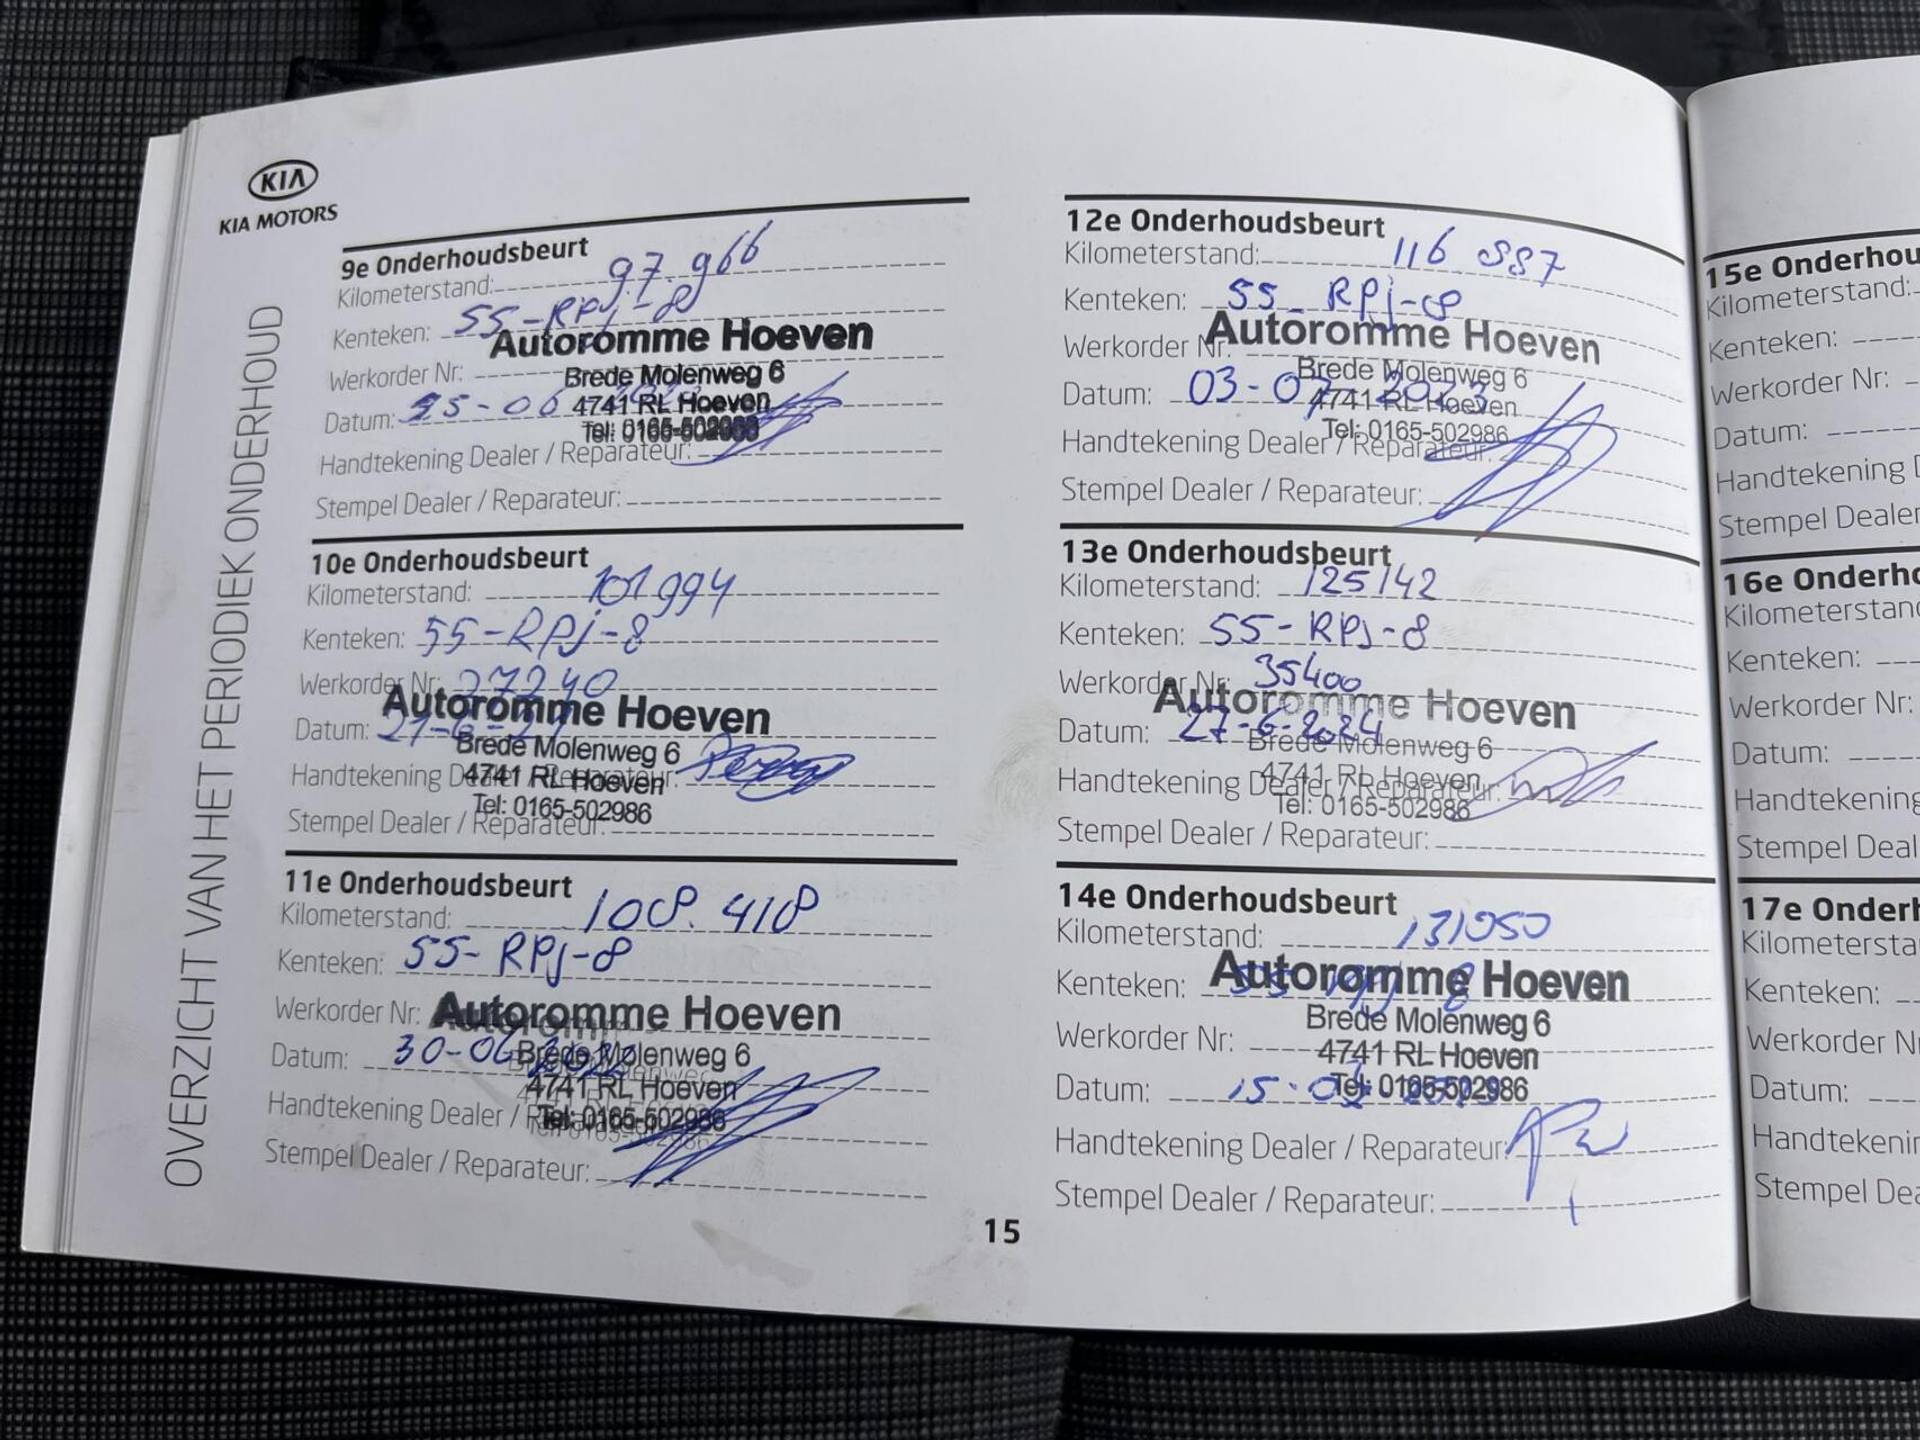 KIA
KIA MOTORS
OVERZICHT VAN HET PERIODIEK ONDERHOUD
9e Onderhoudsbeurt
Kilometerstand: 97.966
Kenteken: 55-RPj-8
Autoromme Hoeven
Werkorder Nr:
Brede Molenweg 6
Datum: 25-06
4741 RL Hoeven
Tel: 0165-502986
Handtekening Dealer / Reparateur:
Stempel Dealer / Reparateur:
10e Onderhoudsbeurt
Kilometerstand: 101994
Kenteken: 55-RPj-8
Werkorder Nr: 27240
Autoromme Hoeven
Datum: 21-6-21
Brede Molenweg 6
Handtekening Dealer / Reparateur:
4741 RL Hoeven
Tel: 0165-502986
Stempel Dealer / Reparateur:
11e Onderhoudsbeurt
Kilometerstand: 108.418
Kenteken: 55-RPj-8
Werkorder Nr:
Autoromme Hoeven
Datum: 30-06-2022
Brede Molenweg 6
4741 RL Hoeven
Handtekening Dealer / Reparateur:
Tel: 0165-502986
Stempel Dealer / Reparateur:
12e Onderhoudsbeurt
Kilometerstand: 116 887
Kenteken: 55-RPj-8
Autoromme Hoeven
Werkorder Nr:
Brede Molenweg 6
Datum: 03-07-2023
4741 RL Hoeven
Tel: 0165-502986
Handtekening Dealer / Reparateur:
Stempel Dealer / Reparateur:
13e Onderhoudsbeurt
Kilometerstand: 125142
Kenteken: 55-RPJ-8
Werkorder Nr: 35400
Autoromme Hoeven
Datum: 27-6-2024
Brede Molenweg 6
4741 RL Hoeven
Handtekening Dealer / Reparateur:
Tel: 0165-502986
Stempel Dealer / Reparateur:
14e Onderhoudsbeurt
Kilometerstand: 131050
Autoromme Hoeven
Kenteken: 55 RPJ 8
Brede Molenweg 6
Werkorder Nr:
4741 RL Hoeven
Datum: 15-
Tel: 0165-502986
Handtekening Dealer / Reparateur:
Stempel Dealer / Reparateur:
15
15e Onderhou
Kilometerstand:
Kenteken:
Werkorder Nr:
Datum:
Handtekening D
Stempel Dealer
16e Onderho
Kilometerstand
Kenteken:
Werkorder Nr:
Datum:
Handtekening
Stempel Deal
17e Onderh
Kilometersta
Kenteken:
Werkorder N
Datum:
Handtekenin
Stempel Dea